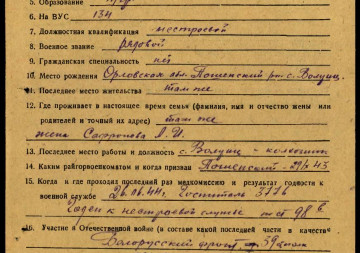 5. Образование
6. На ВУС 134
7. Должностная квалификация нестроевой
8. Военное звание рядовой
9. Гражданская специальность нет
10. Место рождения Орловская обл. с. Волуец
11. Последнее место жительства там же
12. Где проживает в настоящее время семья (фамилия, имя и отчество жены или
родителей и точный их адрес) там же
жена Сафронова
13. Последнее место работы и должность с. Волуец - колхозник
14. Каким райгорвоенкоматом и когда призван 43
15. Когда и где проходил последний раз медкомиссию и результат годности к
военной службе 26.06.44, Госпиталь
Годен к нестроевой службе по ст 98 в
16. Участие в Отечественной войне (в составе какой последней части и в качестве
Белорусский фронт